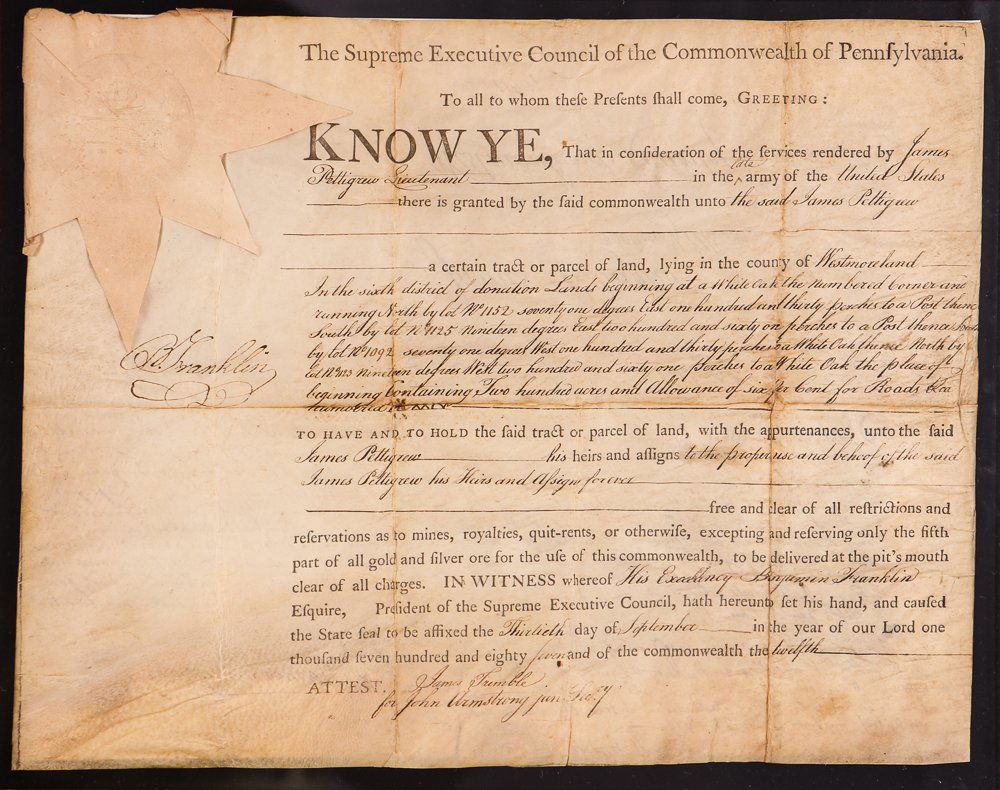 The Supreme Executive Council of the Commonwealth of Pennſylvania.
To all to whom theſe Preſents ſhall come, GREETING:
KNOW YE, That in conſideration of the ſervices rendered by James
Pettigrew Lieutenant in the late army of the United States
there is granted by the ſaid commonwealth unto the said James Pettigrew
a certain tract or parcel of land, lying in the county of Westmoreland
In the sixth district of donation Lands beginning at a White Oak the Numbered Corner and
running North by lot No. 1152 seventy one degrees East one hundred and thirty perches to a Post thence
South by lot No. 1125 Nineteen degrees East two hundred and sixty one perches to a Post thence South
by lot No. 1092 seventy one degrees West one hundred and thirty perches to a White Oak thence North by
lot No. 1123 Nineteen degrees West two hundred and sixty one perches to a White Oak the place of
beginning Containing Two hundred acres and Allowance of six per Cent for Roads &ca
numbered
B. Franklin
TO HAVE AND TO HOLD the ſaid tract or parcel of land, with the appurtenances, unto the ſaid
James Pettigrew his heirs and aſſigns to the proper use and behoof of the said
James Pettigrew his Heirs and Assigns forever
free and clear of all reſtrictions and
reſervations as to mines, royalties, quit-rents, or otherwiſe, excepting and reſerving only the fifth
part of all gold and ſilver ore for the uſe of this commonwealth, to be delivered at the pit's mouth
clear of all charges. IN WITNESS whereof His Excellency Benjamin Franklin
Eſquire, Preſident of the Supreme Executive Council, hath hereunto ſet his hand, and cauſed
the State ſeal to be affixed the Thirtieth day of September in the year of our Lord one
thouſand ſeven hundred and eighty seven and of the commonwealth the twelfth
ATTEST. James Trimble
for John Armstrong jun. Secy